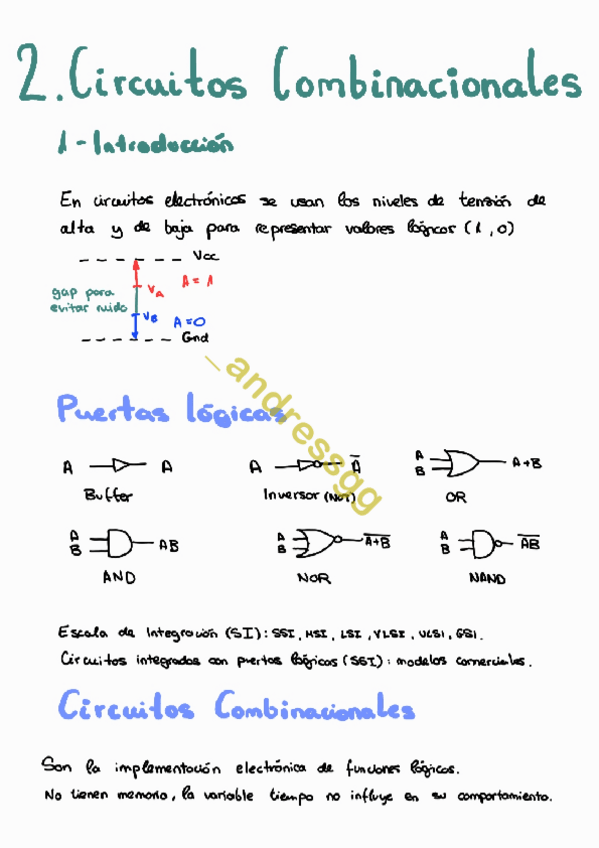 2. Circuitos Combinacionales
1 - Introducción
En circuitos electrónicos se usan los niveles de tensión de
alta y de baja para representar valores lógicos (1, 0)
Vcc
gap para
evitar ruido
VA
A = 1
VB
A = 0
Gnd
_andressgg
Puertas lógicas
A A
Buffer
A A̅
Inversor (NOT)
A
B
A+B
OR
A
B
AB
AND
A
B
A̅+̅B̅
NOR
A
B
A̅B̅
NAND
Escala de Integración (SI): SSI, MSI, LSI, VLSI, ULSI, GSI.
Circuitos integrados con puertas lógicas (SSI): modelos comerciales.
Circuitos Combinacionales
Son la implementación electrónica de funciones lógicas.
No tienen memoria, la variable tiempo no influye en su comportamiento.